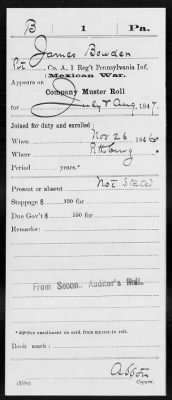 B 1 Pa.
James Bowden
Pvt., Co. A, 1 Reg't Pennsylvania Inf.
Mexican War.
Appears on
Company Muster Roll
for July & Aug, 1847.
Joined for duty and enrolled:
When Nov 26, 1846*
Where Pittsburg
Period years.*
Present or absent Not Stated
Stoppage $ 100 for
Due Gov't $ 100 for
Remarks:
From Second Auditor's Roll.
*See enrollment on card from muster-in roll.
Book mark:
Abbott
Copyist.